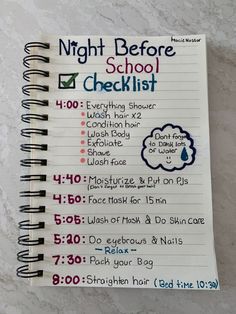 Night Before
School
Checklist
4:00: Everything Shower
Wash hair x2
Condition hair
Wash Body
Exfoliate
Shave
Wash face
Dont forget
to Drink lots
of water
4:40: Moisturize & Put on PJs
(Don't forget to Brush your hair)
4:50: Face Mask for 15 min
5:05: Wash of Mask & Do Skin Care
5:20: Do eyebrows & Nails
- Relax -
7:30: Pack your Bag
8:00: Straighten hair (Bed time 10:30)